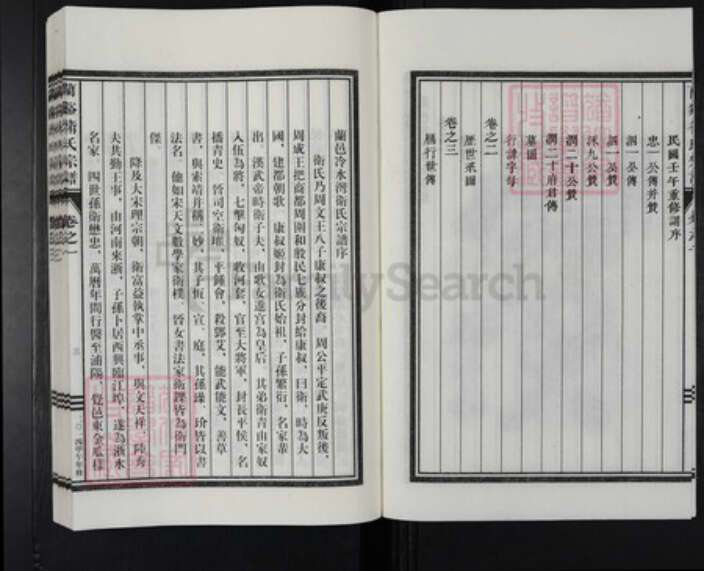 民國壬午重修譜序
忠一公傳并贊
泗一公傳
泗一公贊
涿九公贊
潤二十公贊
潤二十府君傳
墓圖
行諱字母
卷之二
歷世系圖
卷之三
鵬行世傳
蘭邑冷水灣衛氏宗譜序
衛氏乃周文王八子康叔之後裔 周公平定武庚反叛後,
周成王把商都周圍和殷民七族分封給康叔,曰衛,時為大
國,建都朝歌 康叔姬封為衛氏始祖,子孫繁衍,名家輩
出,漢武帝時衛子夫,由歌女進宮為皇后 其弟衛青由家奴
入伍為將,七擊匈奴,收河套,官至大將軍,封長平侯,名
播青史 晉司空衛瓘,平鍾會,殺鄧艾,能武能文,善草
書,與索靖并稱一妙,其子恆、宣、庭,其孫璪、玠皆以書
法名 他如宋天文數學家衛樸、晉女書法家衛鑠皆為衛門
傑
降及大宋理宗朝,衛富益執掌中丞事,與文天祥、陸秀
夫共勤王事,由河南來浙,子孫卜居西興臨江埠,遂為浙水
名家 四世孫衛懋忠,萬曆年間行醫至浦陽,覺邑東金瓜樣
蘭谿衛氏宗譜 卷之一
FamilySearch